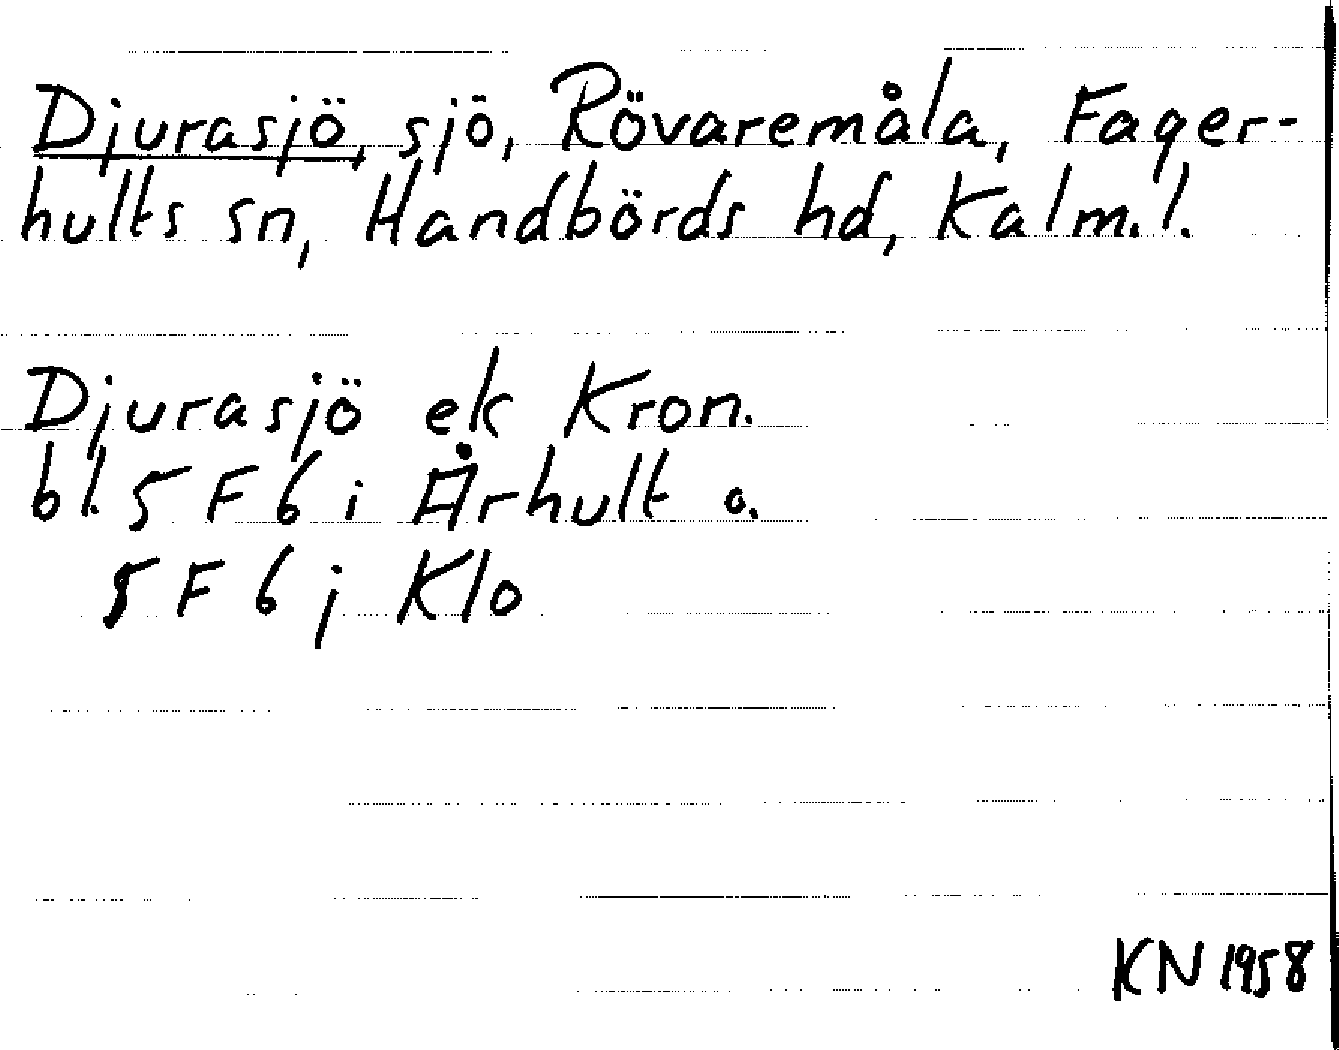 Djurasjö, sjö, Rövaremåla, Fager-
hults sn, Handbörds hd, Kalm. l.
Djurasjö ek Kron.
bl. 5 F 6 i Århult o.
5 F 6 j Klo
KN 1958